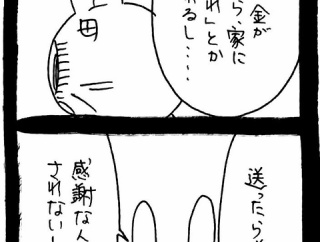 金が
ら、家に
れ」とか
るし‥‥
母
送ったら
感謝なん
されないし